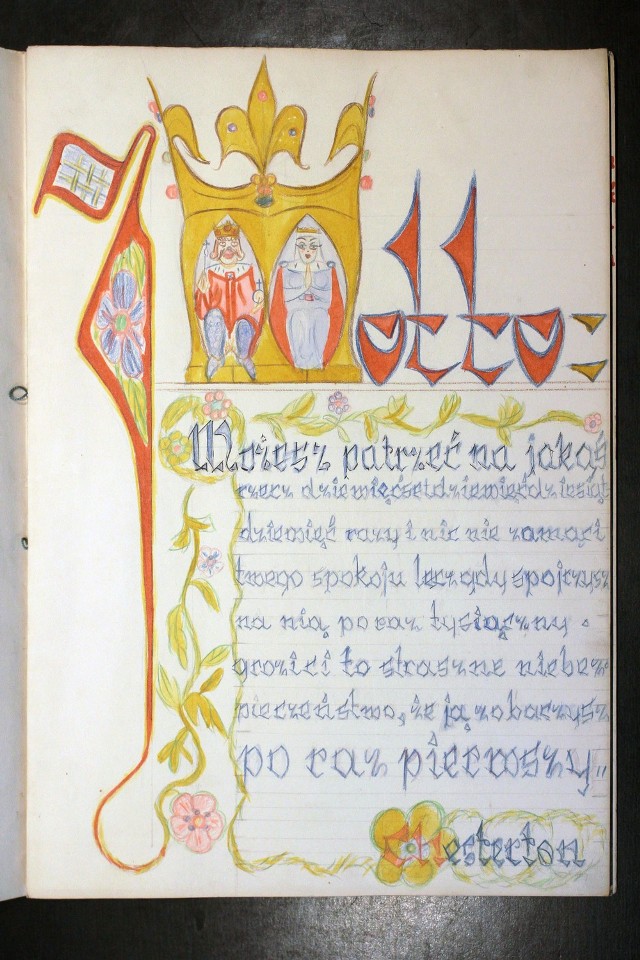 Motto:
Możesz patrzeć na jakąś
rzecz dziewięćsetdziewięćdziesiąt
dziewięć razy i nic nie zamąci
twego spokoju lecz gdy spojrzysz
na nią po raz tysiączny .
grozi ci to straszne niebez-
pieczeństwo, że ją zobaczysz
po raz pierwszy"
Chesterton